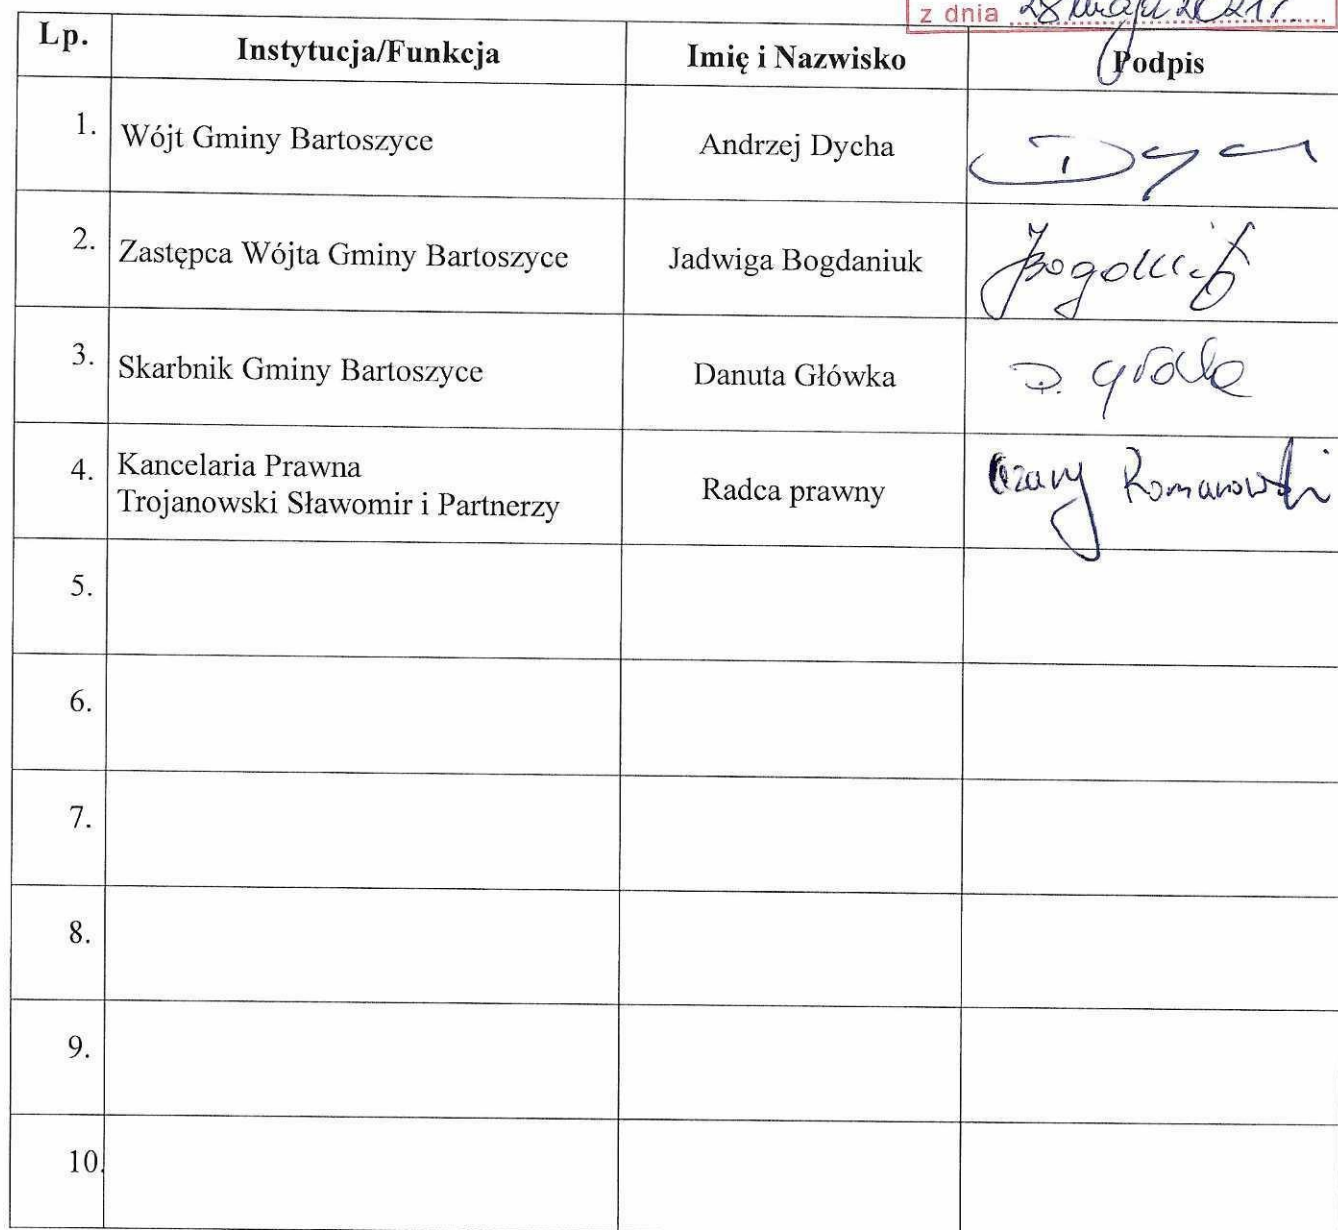 z dnia 28 maja 2021r.
Lp. Instytucja/Funkcja Imię i Nazwisko Podpis
1. Wójt Gminy Bartoszyce Andrzej Dycha
2. Zastępca Wójta Gminy Bartoszyce Jadwiga Bogdaniuk
3. Skarbnik Gminy Bartoszyce Danuta Główka
4. Kancelaria Prawna
Trojanowski Sławomir i Partnerzy Radca prawny Cezary Romanowski
5.
6.
7.
8.
9.
10.